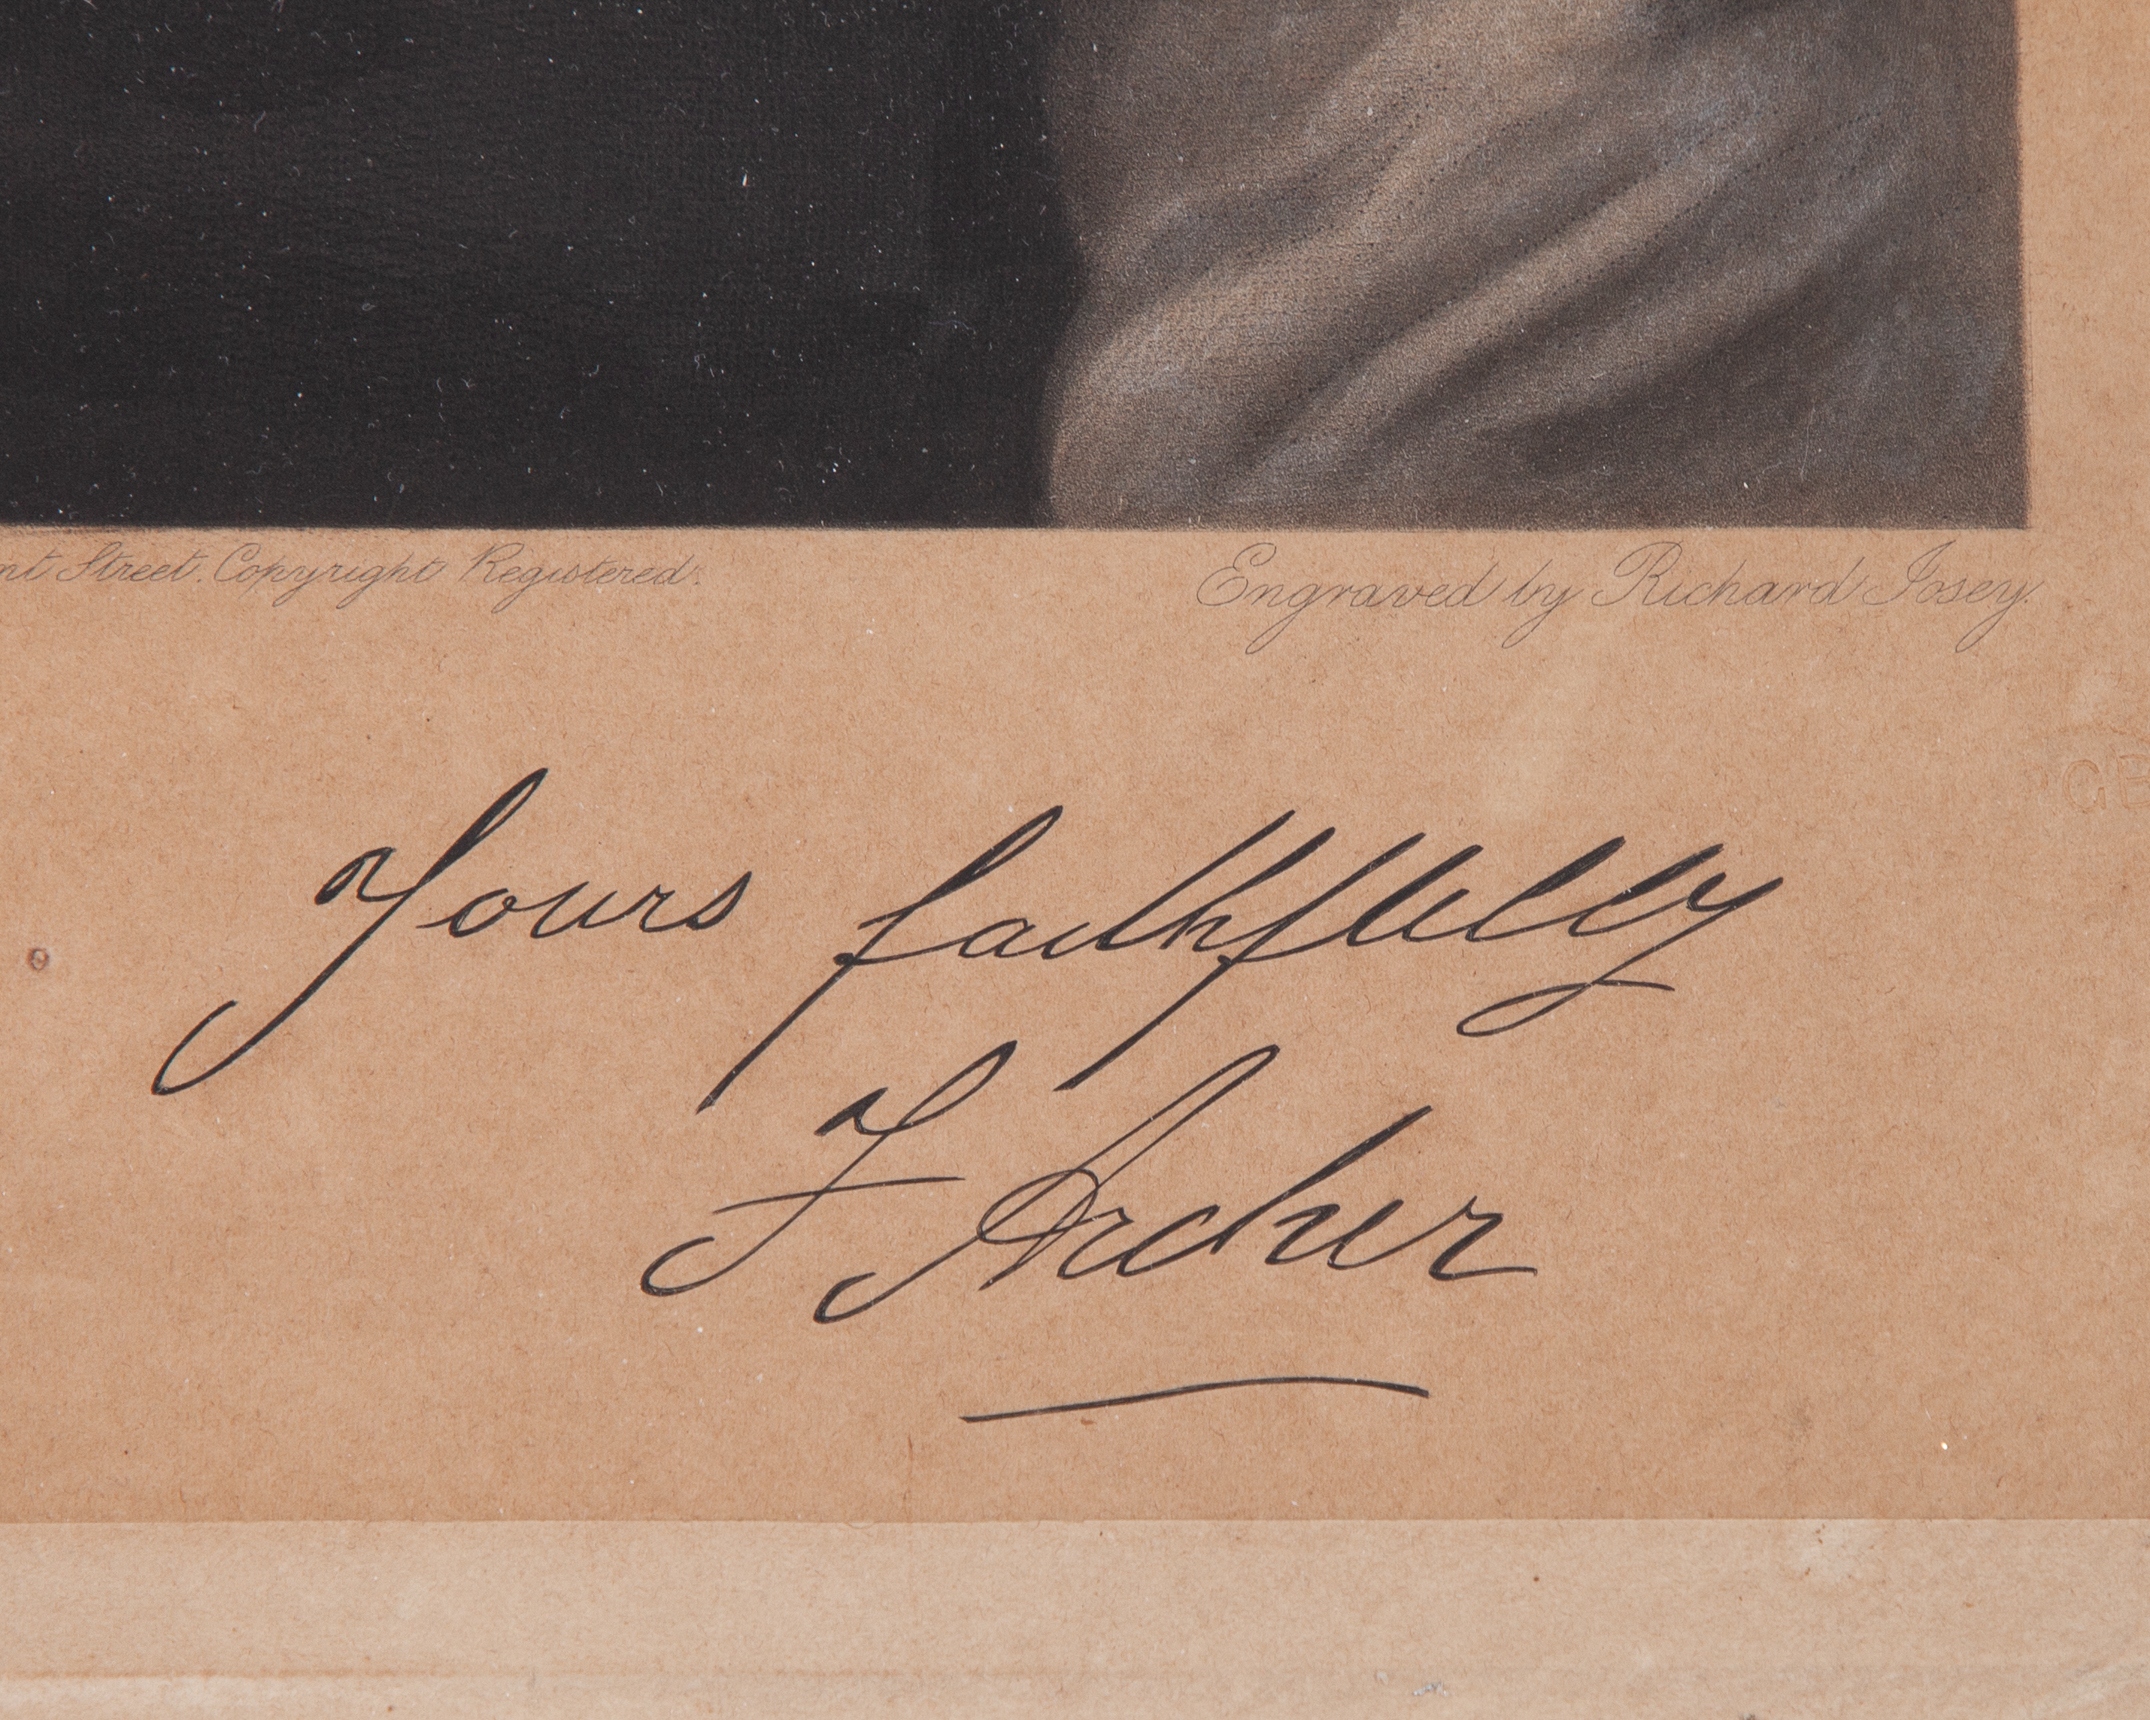 Street. Copyright Registered.
Engraved by Richard Josey.
Yours faithfully
F Archer